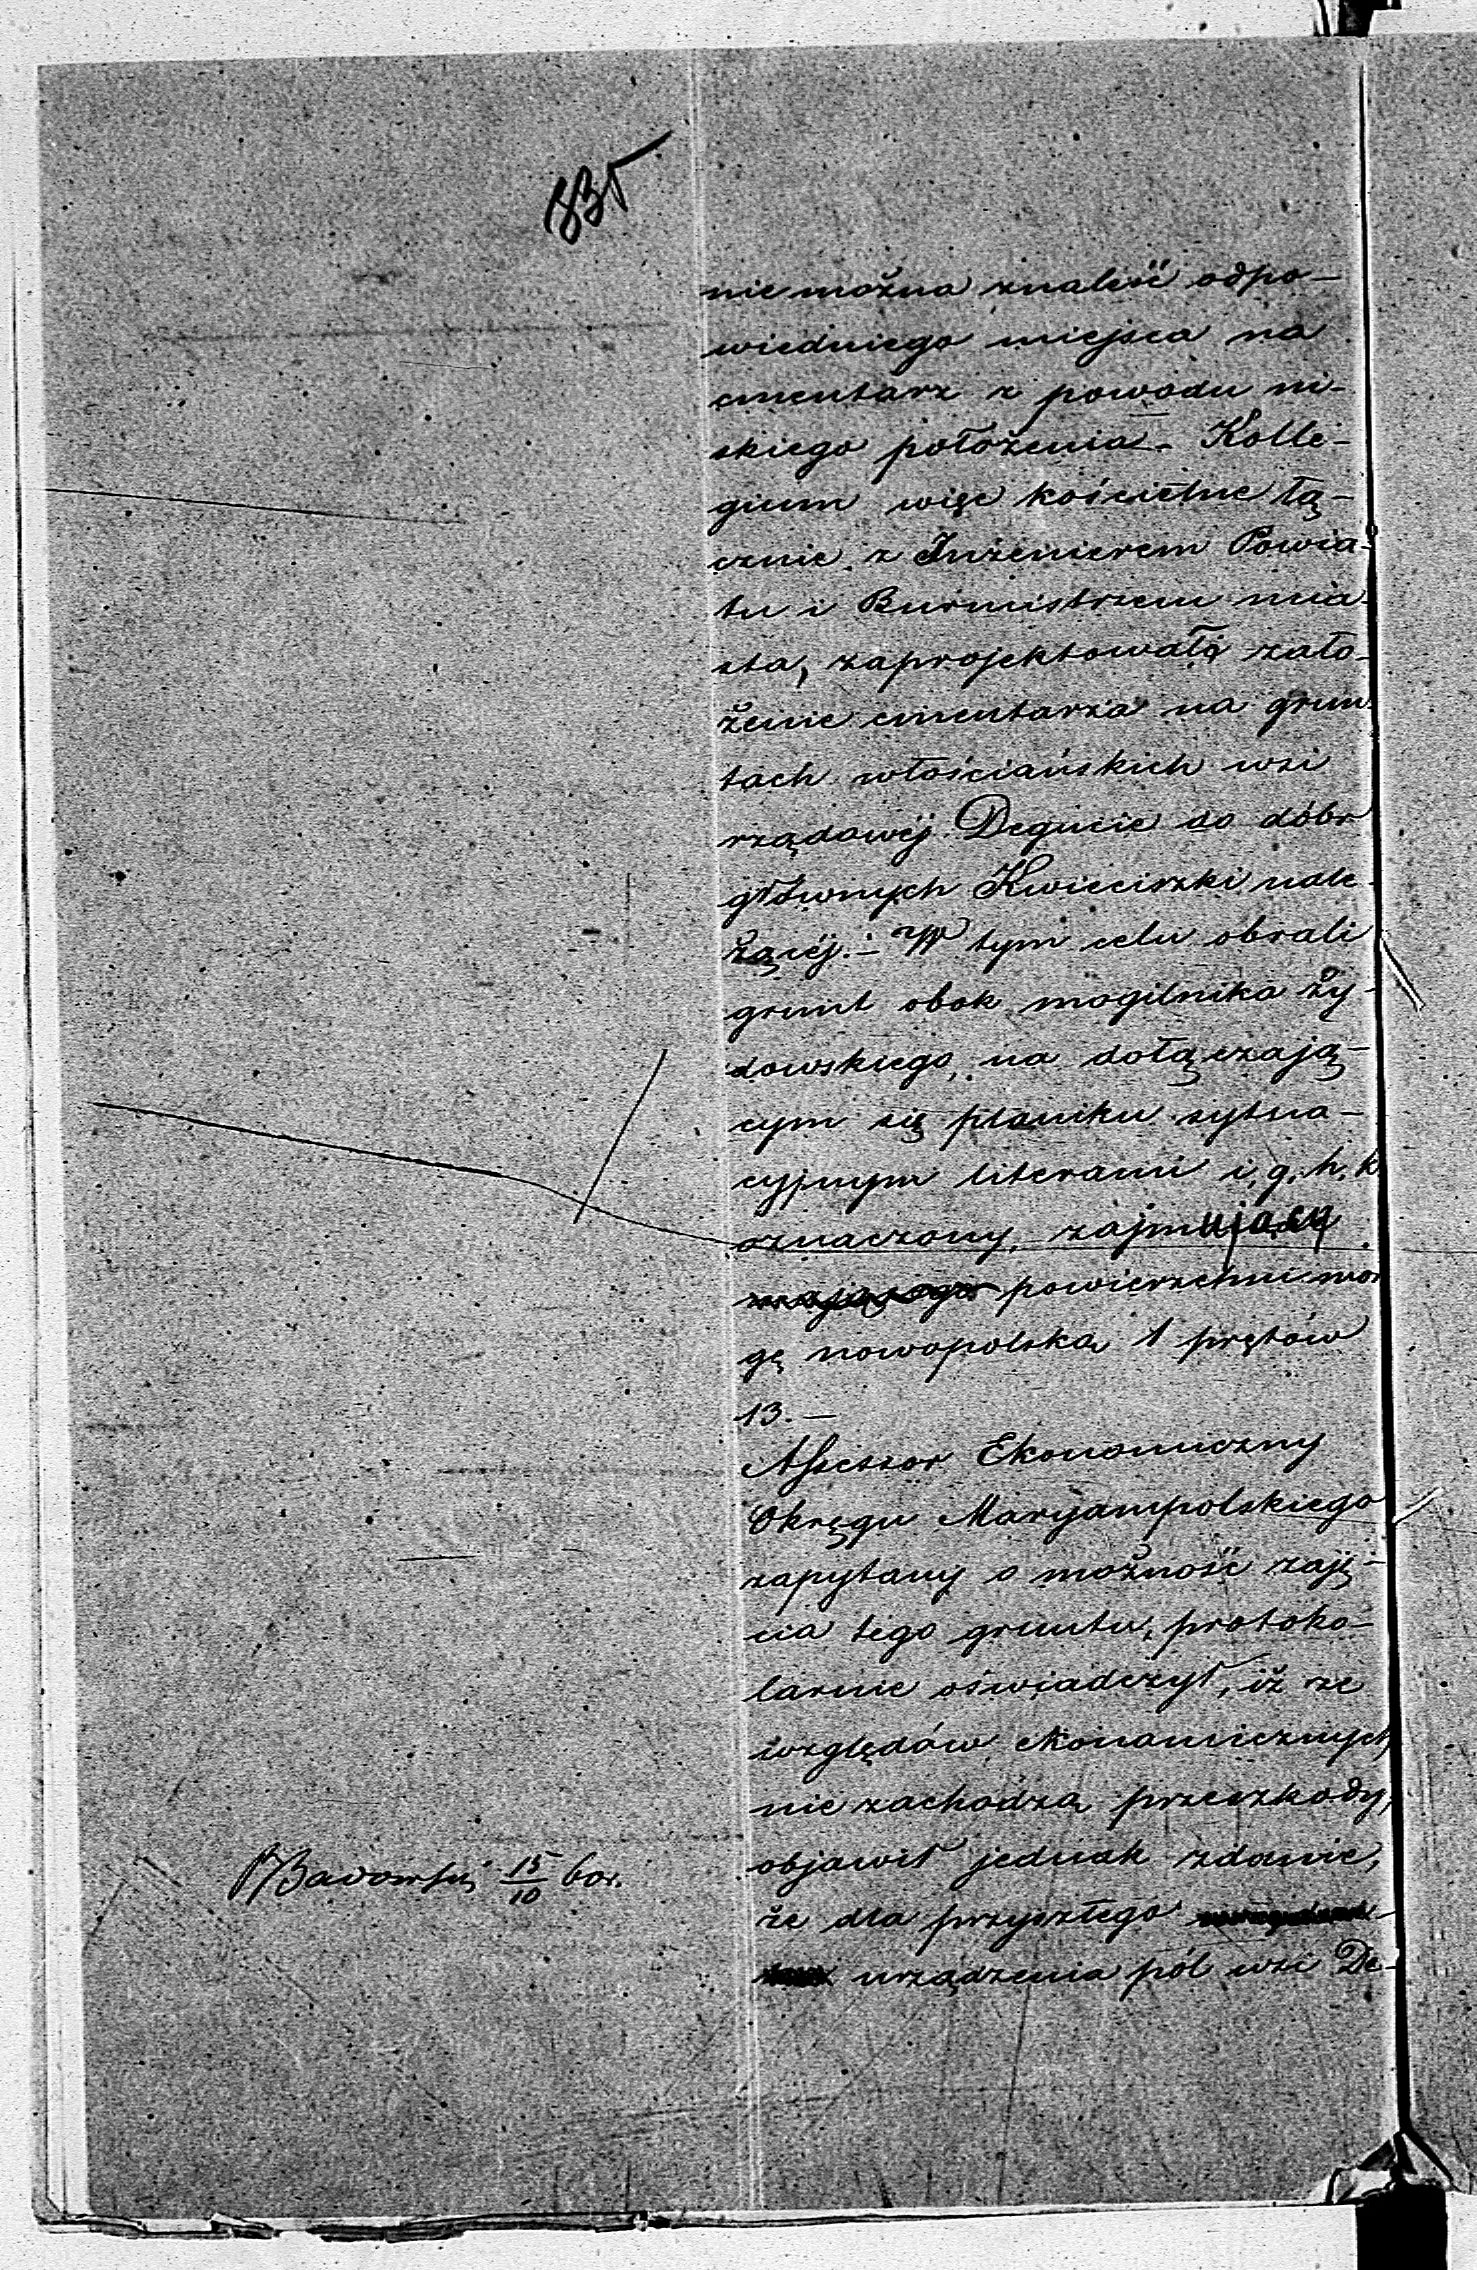 nie można znaleść odpo-
wiedniego miejsca na
cmentarz z powodu ni-
skiego położenia. Kolle-
gium więc kościelne łą-
cznie z Inżenierem Powia-
tu i Burmistrzem mia-
sta, zaprojektowało zało-
żenie cmentarza na grun-
tach włościańskich wsi
rządowéj Degucie do dóbr
głównych Kwieciszki nale-
żącéj. – W tym celu obrali
grunt obok mogilnika ży-
dowskiego, na dołączają-
cym się planiku sytua-
cyjnym literami i, g, h, k
oznaczony, zajmujący
powierzchni mor
gę nowopolską 1 prętów
13. –
Assessor Ekonomiczny
Okręgu Maryampolskiego
zapytany o możność zaję-
cia tego gruntu, protoko-
larnie oświadczył, iż ze
względów ekonomicznych
nie zachodzą przeszkody,
objawił jednak zdanie,
że dla przyszłego
urządzenia pól wsi De-
15/10 60r.